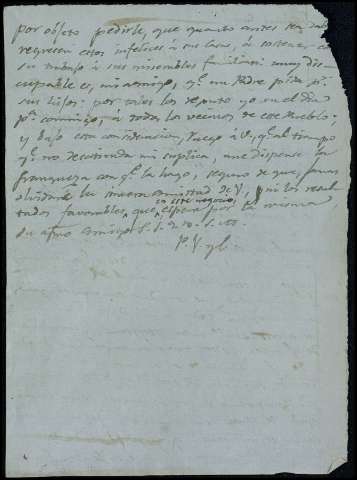 por objeto pedirle, que quanto antes sea dable
regresen estos infelices á sus casas, á sostener con
su trabajo á sus miserables familias: muy dis-
culpable es, mi amigo, q.e un Padre pida p.r
sus hijos: por tales los reputo yo en el dia
p.a conmigo, á todos los vecinos de este Pueblo;
y bajo esta consideracion, ruego á V. q.e al tiempo
q.e no desatienda mi suplica, me dispense la
franqueza con q.e la hago, seguro de que, jamas
olvidará la sincera amistad de V., y ni los resul-
en este negocio,
tados favorables, que espera por la misma,
su afmo amigo S. S. Q. B. S. M.